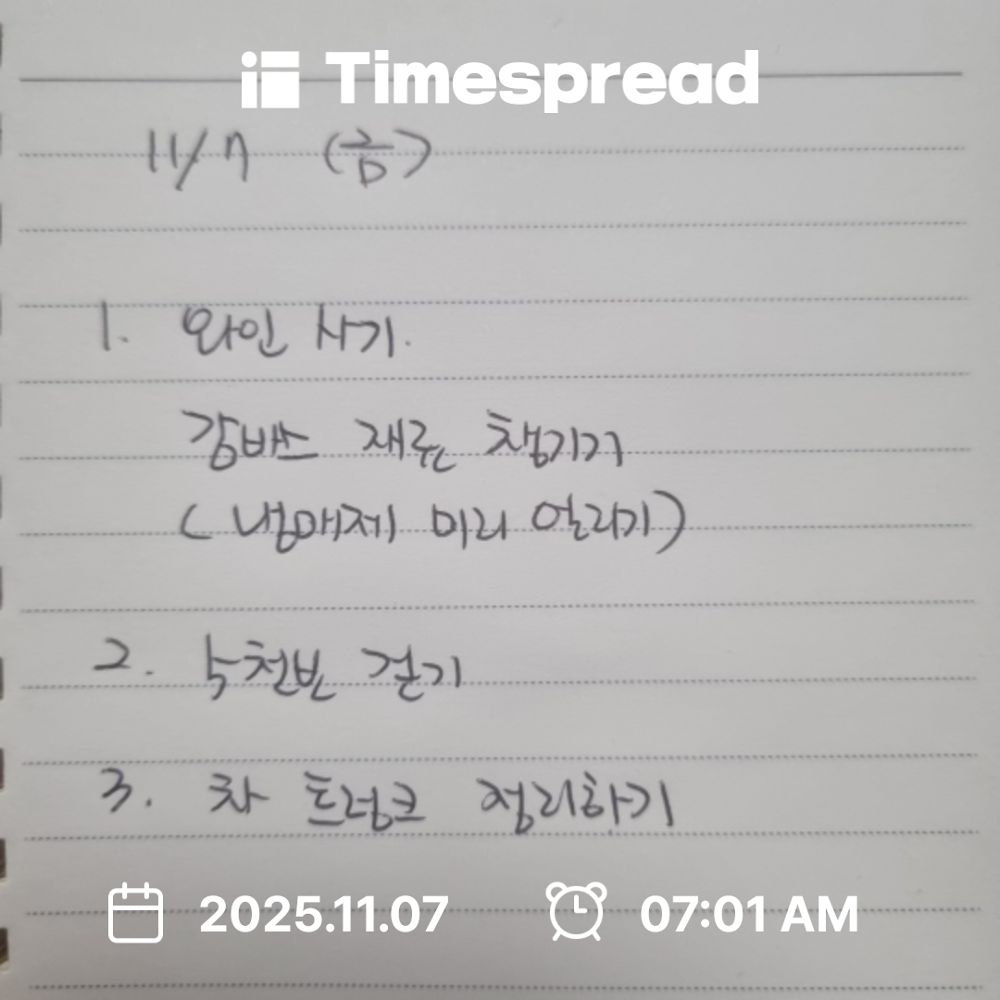 Timespread
11/7 (금)
1. 와인 사기.
감바스 재료 챙기기
(냉매제 미리 얼리기)
2. 천변 걷기
3. 차 트렁크 정리하기
2025.11.07 07:01 AM